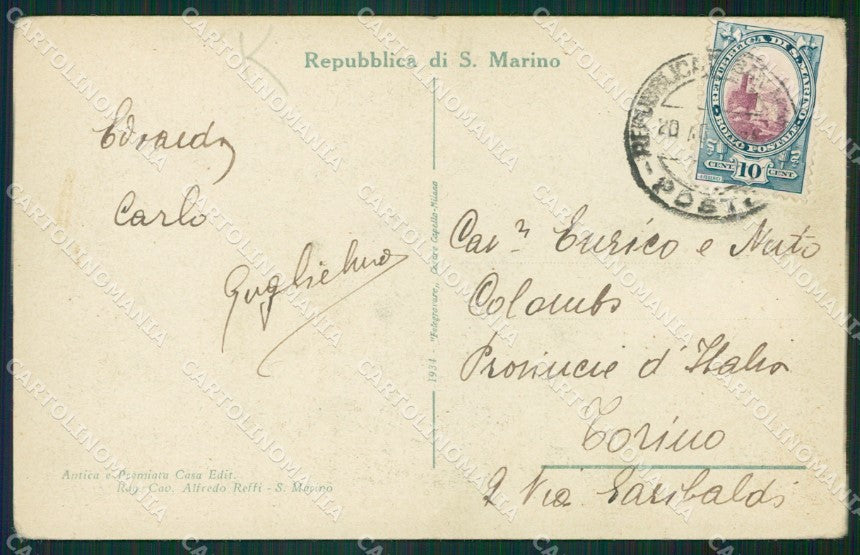 Repubblica di S. Marino
REPUBBLICA DI S. MARINO
BOLLO POSTALE
CENT 10 CENT
REPUBBLICA
20
POSTE
Edoardo
Carlo
Guglielmo
Cav.r Enrico e Nuto
Colombo
Provincie d'Italia
Torino
2 Via Garibaldi
1934 "Fotogravure,, Cesare Capello-Milano
Antica e Premiata Casa Edit.
Rag. Cav. Alfredo Reffi - S. Marino
CARTOLINOMANIA